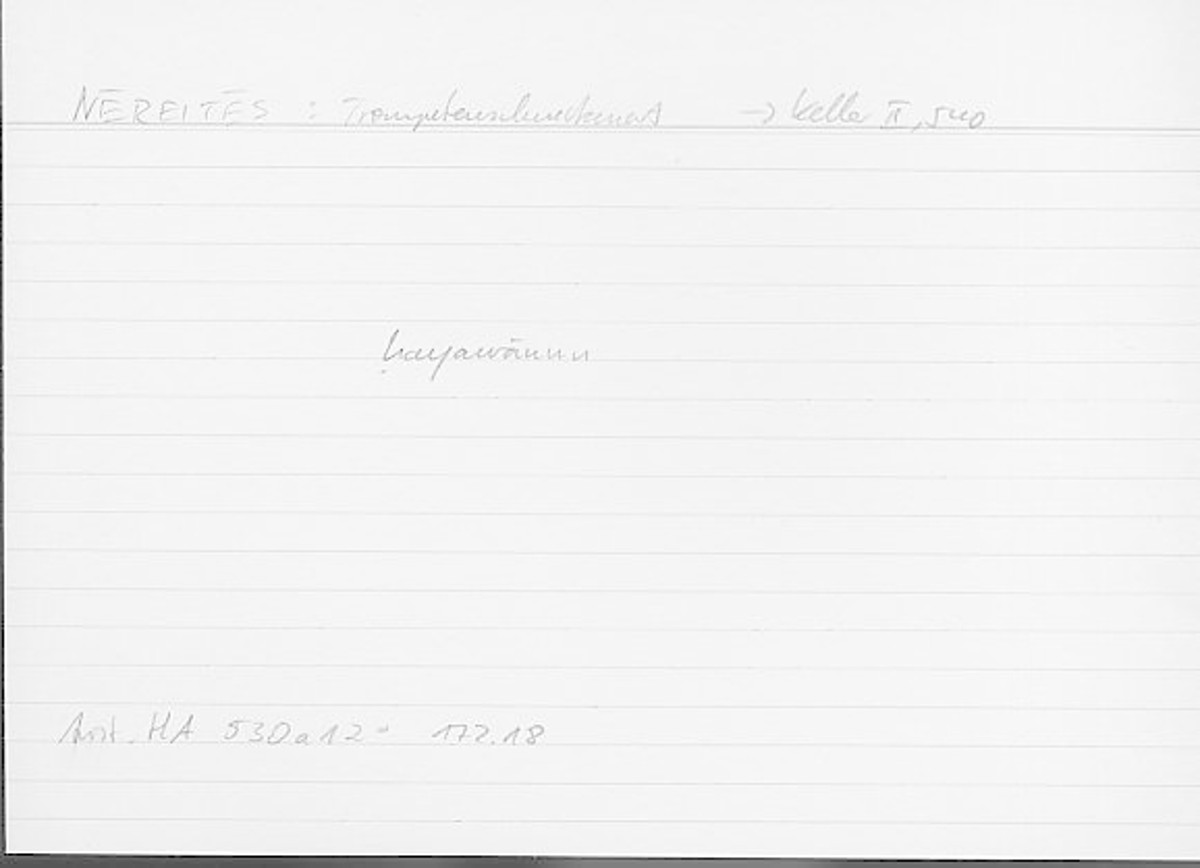 NĒREITĒS : Trompetenschneckenart → Keller II, 540
ḥayawānun
Arist. HA 530a12 = 172.18